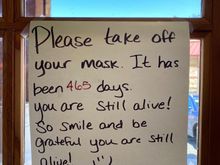 Please take off
your mask. It has
been 465 days.
you are still alive!
So smile and be
grateful you are still
alive!